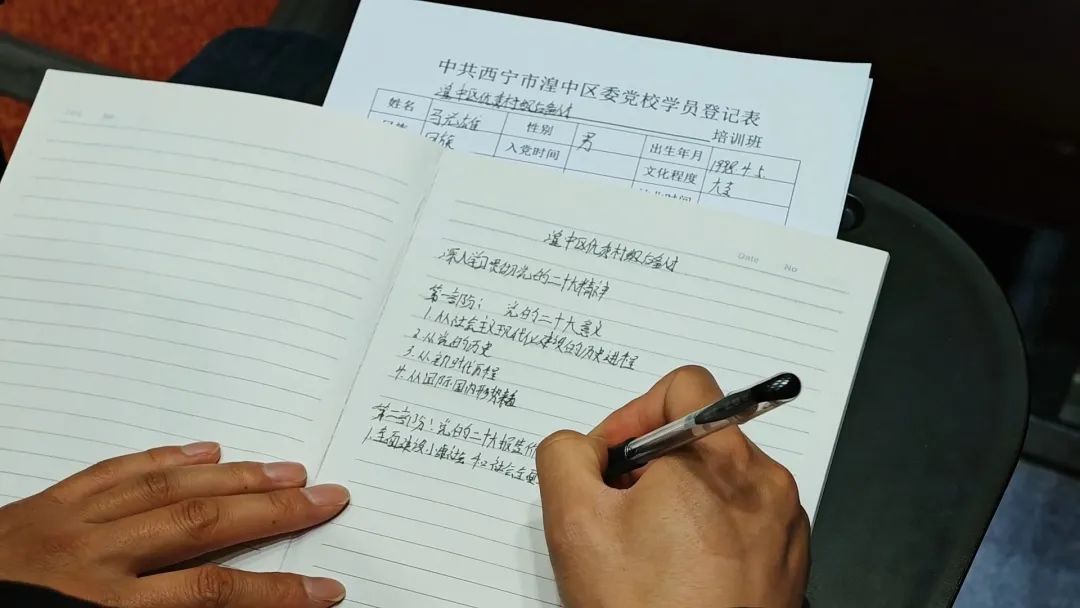 中共西宁市湟中区委党校学员登记表
湟中区优秀村级后备干 培训班
姓名 性别 男 出生年月 1998.4.5
回族 入党时间 文化程度 大专
湟中区优秀村级后备
Date No
深入学习贯彻党的二十大精神
第一部分: 党的二十大意义
1.从社会主义现代化建设的历史进程
2.从党的历史
3.从新时代历程
4.从国际国内形势来看
第二部分:党的二十大报告
1.全面建设小康社会和社会全面